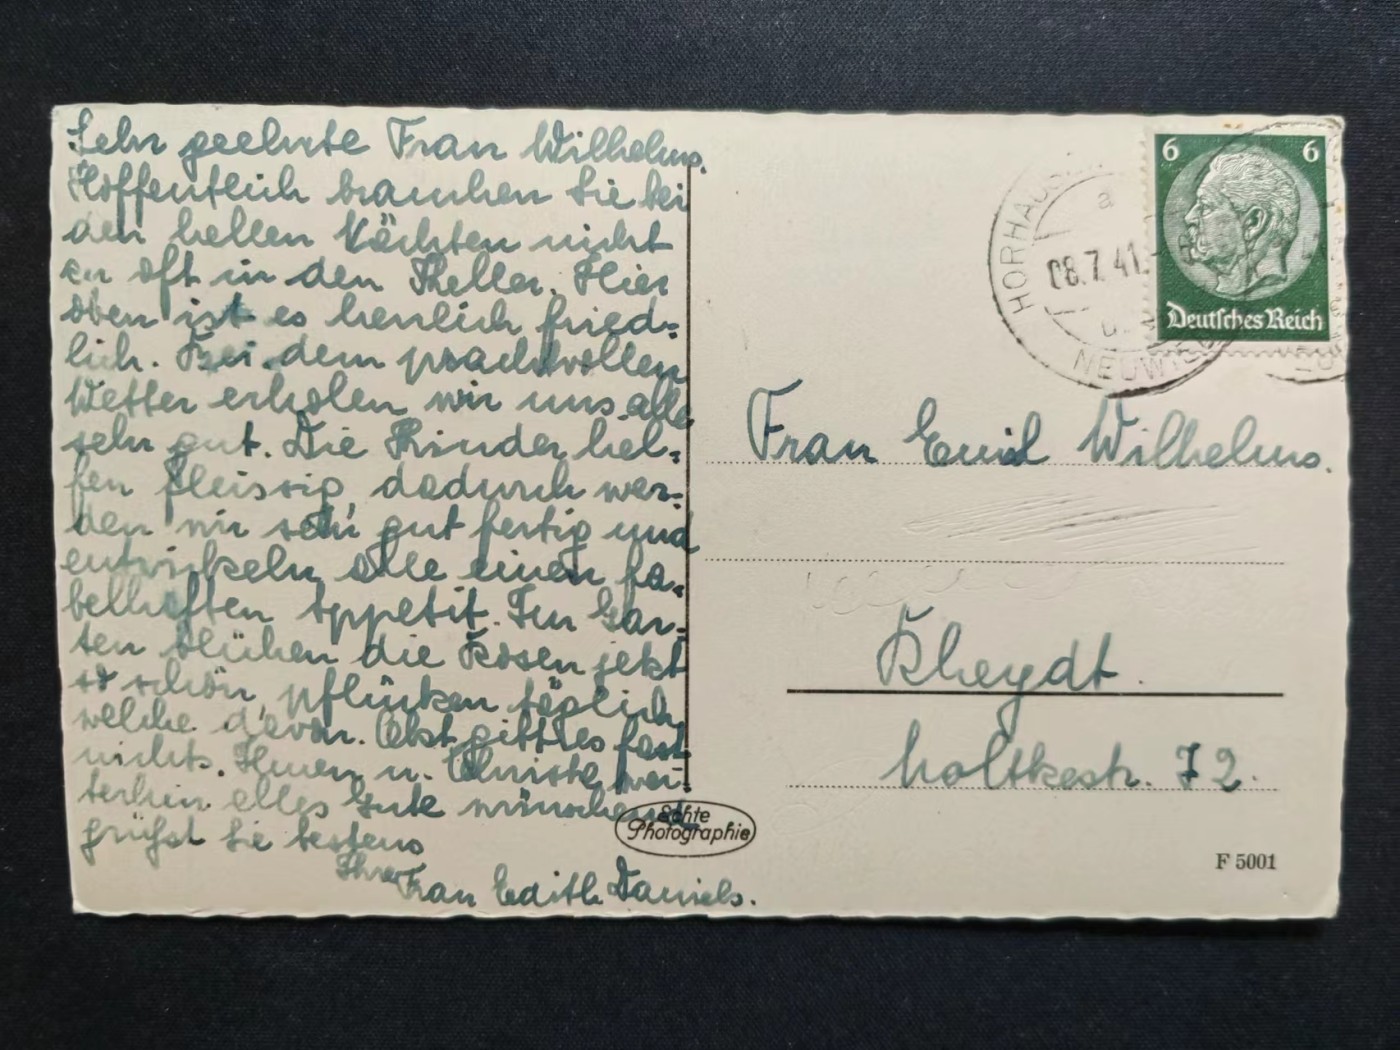 Sehr geehrte Frau Wilhelms.
Hoffentlich brauchen Sie bei
den hellen Nächten nicht
zu oft in den Keller. Hier
oben ist es herrlich fried-
lich. Bei dem prachtvollen
Wetter erholen wir uns alle
sehr gut. Die Kinder hel-
fen fleissig, dadurch wer-
den wir sehr gut fertig und
entwickeln alle einen fa-
belhaften Appetit. Im Gar-
ten blühen die Rosen jetzt
so schön, pflücken täglich
welche davon. Obst gibt es fast
nichts. Ihnen u. Christe, wei-
terhin alles Gute wünschend
grüßt Sie bestens
Ihre
Frau Edith Daniels.
Echte
Photographie
HORHAUS
a
08.7.41.
NEUWIE
6 6
Deutsches Reich
Frau Emil Wilhelms.
Rheydt.
Moltkestr. 72.
F 5001